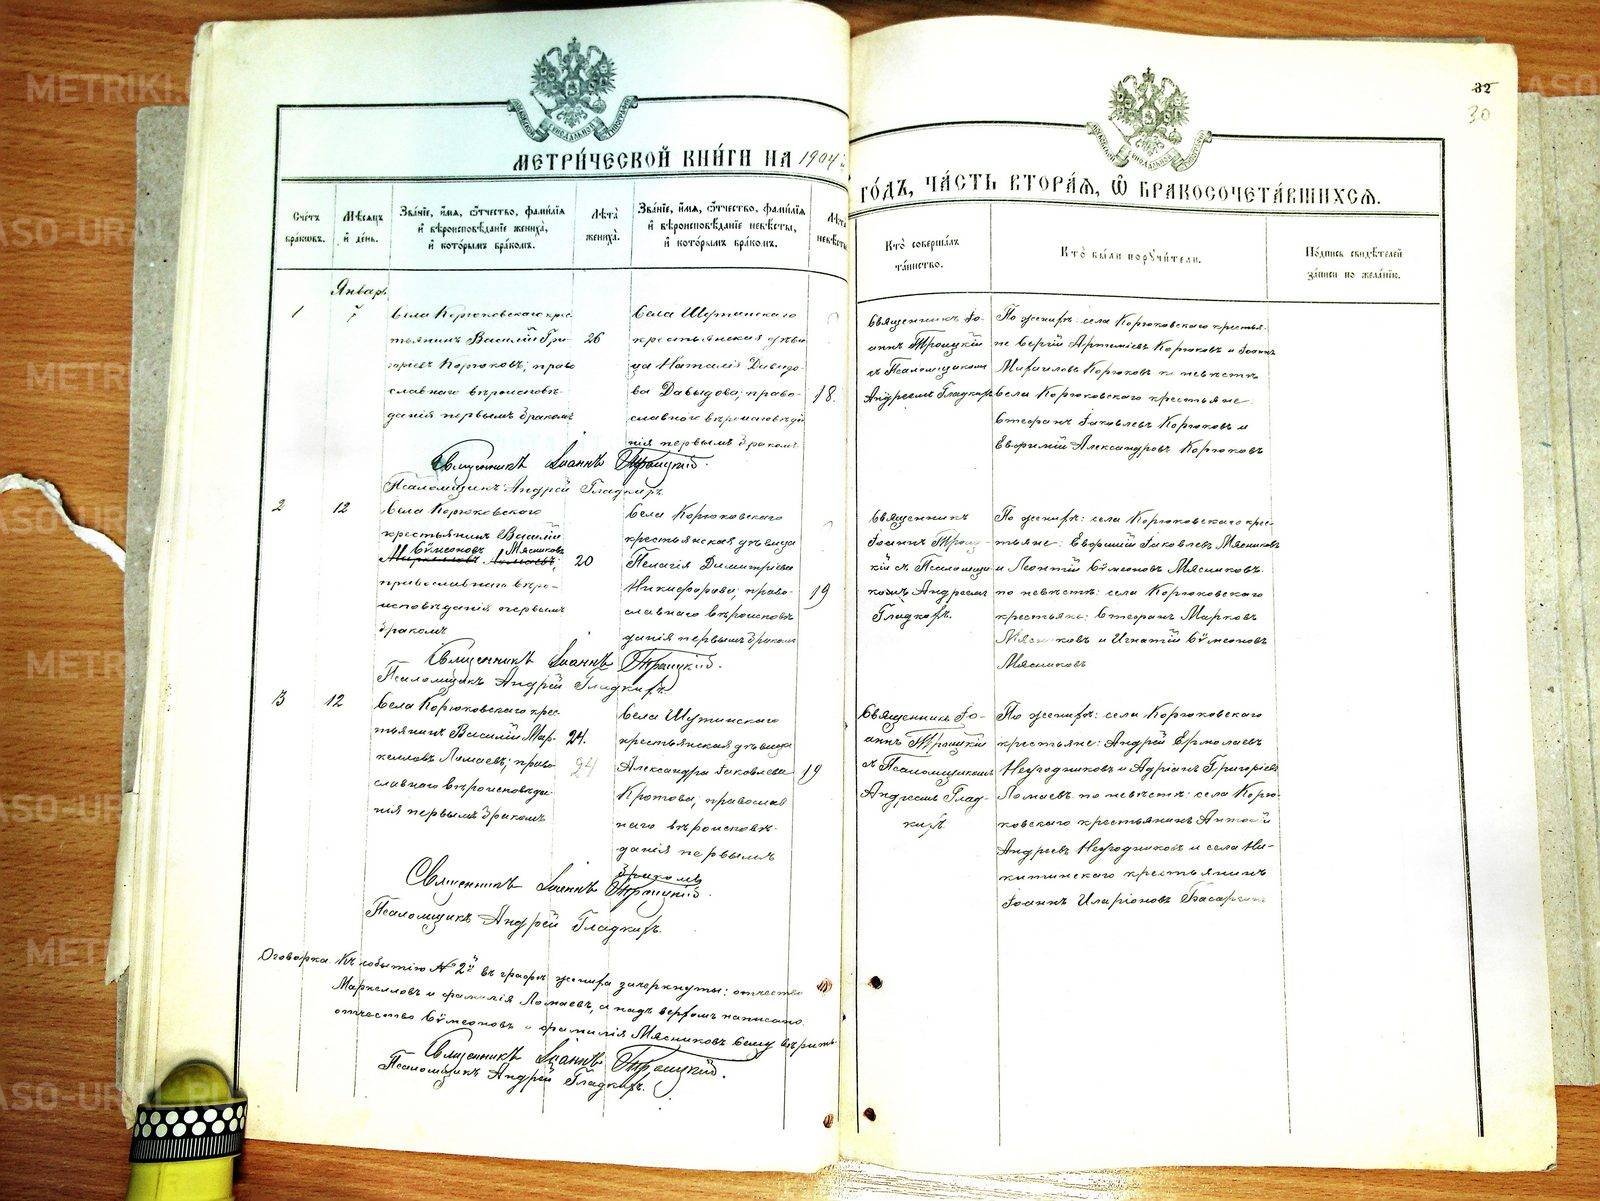 METRIKI.
ASO-URAL.RU
32
30
МЕТРИ́ЧЕСКОЙ КНИ́ГИ НА 1904 г.
ГО́ДЪ, ЧА́СТЬ ВТОРА́Я, Ѿ БРАКОСОЧЕТА́ВШИХСЯ.
Сче́тъ бра́ковъ.
Мѣ́сяцъ и́ де́нь.
Зва́нїе, и́мя, о́тчество, фами́лїя и́ вѣроисповѣ́данїе жениха̀, и́ кото́рымъ бра́комъ.
Лѣ́та жениха̀.
Зва́нїе, и́мя, о́тчество, фами́лїя и́ вѣроисповѣ́данїе невѣ́сты, и́ кото́рымъ бра́комъ.
Лѣ́та невѣ́сты
Кто̀ соверша́лъ та́инство.
Кто̀ бы́ли поручи́тели.
По́дпись свидѣ́телей за́писи по жела́нїю.
Январь
1
7
Села Корюковскаго крес
тьянинъ Василій Гри-
горіевъ Корюковъ; право
славнаго вѣроисповѣ-
данія первымъ бракомъ
26
Села Шутинскаго
крестьянская дѣви
ца Наталія Давидо-
ва Давыдова; право-
славного вѣроисповѣда
нія первымъ бракомъ
18.
Священникъ Іо-
аннъ Троицкій
съ Псаломщикомъ
Андреемъ Гладкихъ
По женихѣ: села Корюковскаго крестья-
не Сергій Артеміевъ Корюковъ и Іоаннъ
Михаиловъ Корюковъ по невѣстѣ
села Корюковскаго крестьяне
Стефанъ Іаковлевъ Корюковъ и
Евфимій Александровъ Корюковъ
Священникъ Іоаннъ Троицкій.
Псаломщикъ Андрей Гладкихъ
2
12
Села Корюковскаго
крестьянинъ Василій
Сѵмеоновъ Мясниковъ
Маркелловъ Ломаевъ;
православнаго вѣро-
исповѣданія первымъ
бракомъ
20
Села Корюковскаго
крестьянская дѣвица
Пелагія Димитріева
Никифорова; право-
славнаго вѣроисповѣ
данія первымъ бракомъ
19
Священникъ
Іоаннъ Троиц-
кій съ Псаломщи-
комъ Андреемъ
Гладкихъ.
По женихѣ: села Корюковскаго крес-
тьяне: Евфимій Іаковлевъ Мясниковъ
и Леонтій Сѵмеоновъ Мясниковъ.
по невѣстѣ: села Корюковскаго
крестьяне: Стефанъ Марковъ
Мясниковъ и Игнатій Сѵмеоновъ
Мясниковъ
Священникъ Іоаннъ Троицкій.
Псаломщикъ Андрей Гладкихъ
3
12
Села Корюковскаго крес
тьянинъ Василій Мар-
келловъ Ломаевъ; право
славнаго вѣроисповѣда
нія первымъ бракомъ
24.
24
Села Шутинскаго
крестьянская дѣвица
Александра Іаковлева
Кротова, православ
наго вѣроисповѣ-
данія первымъ
бракомъ
19
Священникъ Іо-
аннъ Троицкій
съ Псаломщикомъ
Андреемъ Глад-
кихъ
По женихѣ: села Корюковскаго
крестьяне: Андрей Ермолаевъ
Негодниковъ и Адріанъ Григоріевъ
Ломаевъ. по невѣстѣ: села Корю-
ковскаго крестьянинъ Антоній
Андреевъ Негодниковъ и села Ни-
китинскаго крестьянинъ
Іоаннъ Иларіоновъ Басаргинъ
Священникъ Іоаннъ Троицкій.
Псаломщикъ Андрей Гладкихъ.
Оговорка. Къ событію № 2й въ графѣ жениха зачеркнуты: отчество
Маркелловъ и фамилія Ломаевъ, а надъ верхомъ написано
отчество Сѵмеоновъ и фамилія Мясниковъ сему вѣрить
Священникъ Іоаннъ Троицкій.
Псаломщикъ Андрей Гладкихъ.